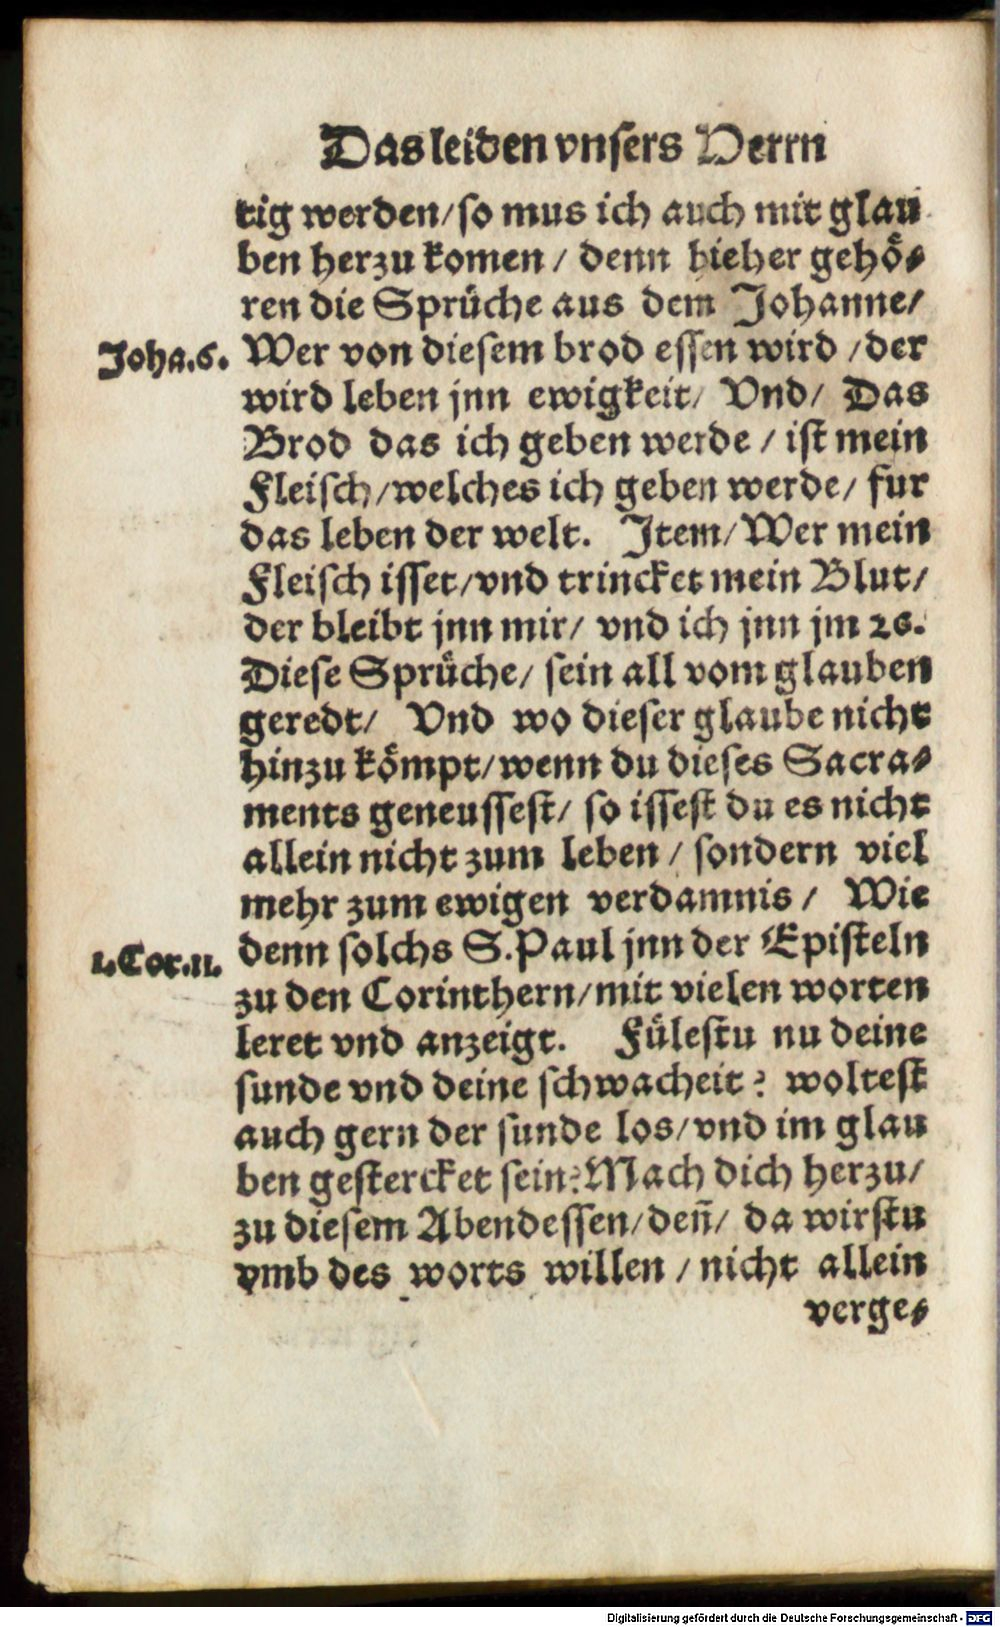 Das leiden vnsers Herrn
tig werden/so mus ich auch mit glau
ben herzu komen/ denn hieher gehö⸗
ren die Sprüche aus dem Johanne/
Joha.6. Wer von diesem brod essen wird /der
wird leben jnn ewigkeit/ Vnd/ Das
Brod das ich geben werde / ist mein
Fleisch/welches ich geben werde/ fur
das leben der welt. Item/Wer mein
Fleisch isset/vnd trincket mein Blut/
der bleibt jnn mir/ vnd ich jnn jm ꝛc.
Diese Sprüche/ sein all vom glauben
geredt/ Vnd wo dieser glaube nicht
hinzu kömpt/wenn du dieses Sacra⸗
ments geneussest/ so issest du es nicht
allein nicht zum leben / sondern viel
mehr zum ewigen verdamnis / Wie
1.Cor.11. denn solchs S.Paul jnn der Episteln
zu den Corinthern/mit vielen worten
leret vnd anzeigt. Fülestu nu deine
sunde vnd deine schwacheit? woltest
auch gern der sunde los/vnd im glau
ben gestercket sein?Mach dich herzu/
zu diesem Abendessen/deñ/ da wirstu
vmb des worts willen / nicht allein
verge⸗
Digitalisierung gefördert durch die Deutsche Forschungsgemeinschaft - DFG